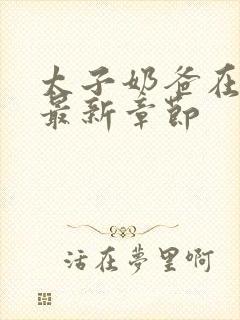 太子奶爸在
最新章節
活在夢里啊